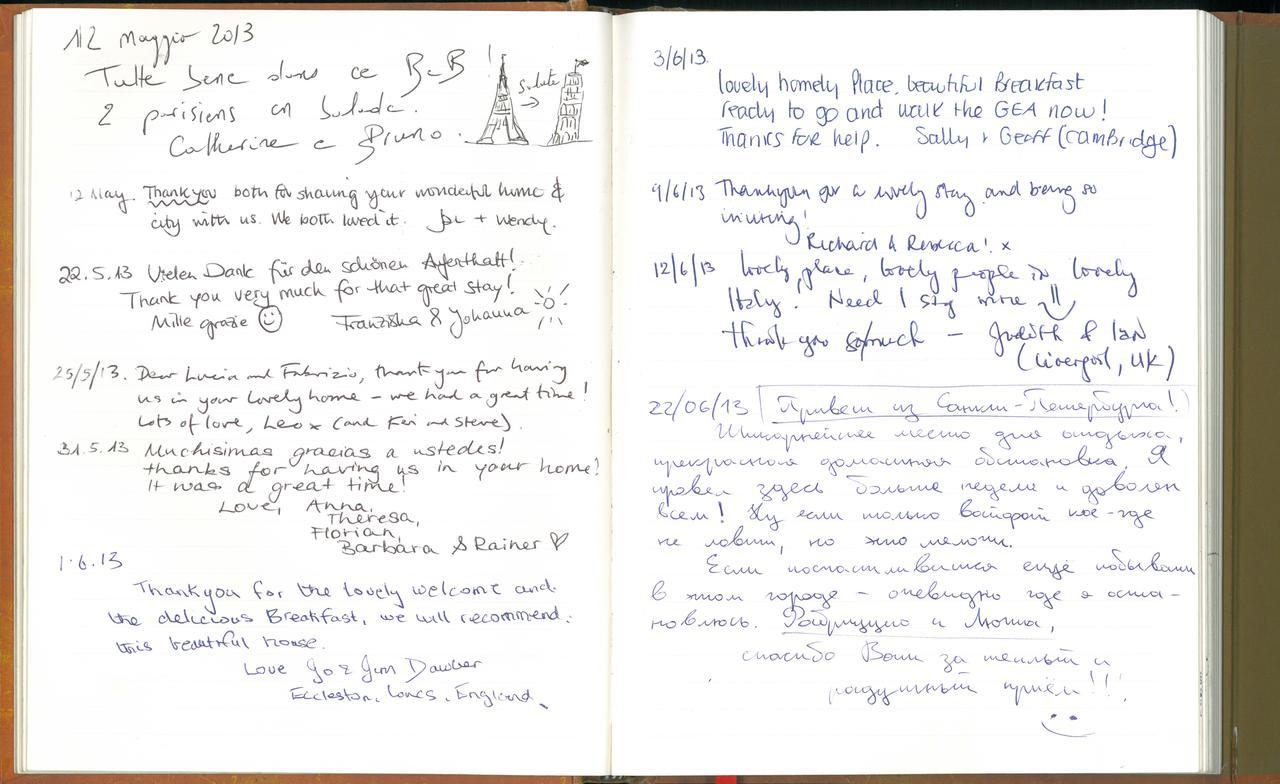 12 Maggio 2013
Tutte bene dans ce B&B !
2 parisiens en balade.
Catherine e Bruno.
Salute
12 May. Thank you both for sharing your wonderful home &
city with us. We both loved it. Joe + Wendy.
22.5.13 Vielen Dank für den schönen
Thank you very much for that great stay!
Mille grazie Franziska & Johanna
25/5/13. Dear Lucia and Fabrizio, thank you for having
us in your lovely home - we had a great time!
Lots of love, Leo x (and Keri and Steve).
31.5.13 Muchisimas gracias a ustedes!
thanks for having us in your home!
It was a great time!
Love, Anna,
Theresa,
Florian,
Barbara & Rainer ♡
1.6.13
Thankyou for the lovely welcome and
the delicious Breakfast, we will recommend
this beautiful house.
Love Jo & Jim Dawber
Eccleston, Lancs, England.
3/6/13.
lovely homely Place, beautiful Breakfast
ready to go and walk the GEA now!
Thanks for help. Sally + Geoff (Cambridge)
9/6/13 Thankyou for a lovely stay and being so
inviting!
Richard & Rebecca! x
12/6/13 Lovely place, lovely people in lovely
Italy. Need I say more!!
thank you so much - Judith & Ian
(Liverpool, UK)
22/06/13 Привет из Санкт-Петербурга!
Шикарнейшее место для отдыха,
прекрасная домашняя обстановка. Я
провел здесь больше недели и доволен
всем! Ну если только вайфай кое-где
не ловит, но это мелочи.
Если посчастливится ещё побывать
в этом городе - очевидно где я оста-
новлюсь. Фабрицио и Лючия,
спасибо Вам за теплый и
радушный приём!!!